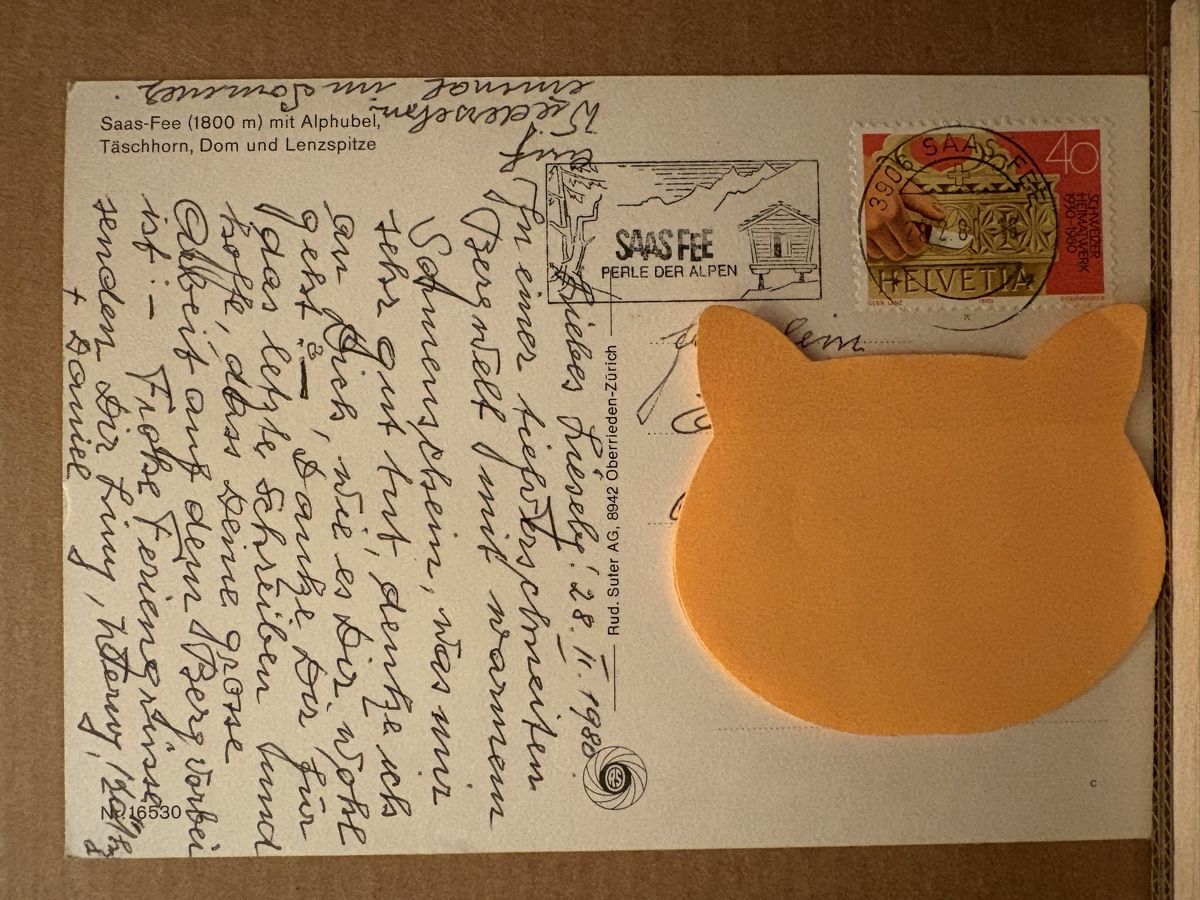 Saas-Fee (1800 m) mit Alphubel,
Täschhorn, Dom und Lenzspitze
Liebes Lieseli! 28. II. 1980
In einer tiefverschneiten
Bergwelt mit warmem
Sonnenschein, was mir
sehr gut tut, denke ich
an Dich, wie es Dir wohl
geht? – Danke Dir für
das letzte Schreiben und
hoffe, dass Deine grosse
Arbeit auf dem Berg vorbei
ist. – Frohe Feriengrüsse
senden Dir
+ Daniel
Auf
Wiedersehn
einmal im Sommer.
Rud. Suter AG, 8942 Oberrieden-Zürich
Nr. 16530
SAAS FEE
PERLE DER ALPEN
3906 SAAS-FEE
40
SCHWEIZER
HEIMATWERK
1930-1980
HELVETIA
1980
COURVOISIER
c